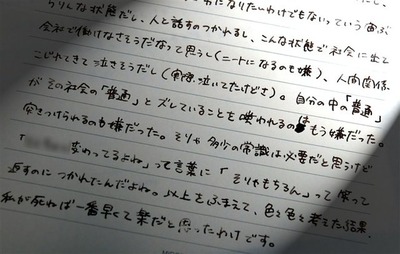 になりたいわけでもないっていう宙ぶ
らりんな状態だし、人と話すのつかれるし、こんな状態で社会に出て
会社で働けなさそうだなって思うし(ニートになるのも嫌)、人間関係
こじれてきて泣きそうだし(実際泣いてたけどさ)。自分の中の「普通」
がその社会の「普通」とズレていることを われるのはもう嫌だった。
突きつけられるのも嫌だった。そりゃ多少の常識は必要だと思うけど
「 変わってるよね」って言葉に「そりゃもちろん」って笑って
返すのにつかれたんだよね。以上をふまえて、色々と考えた結果、
私が死ねば一番早くて楽だと思ったわけです。